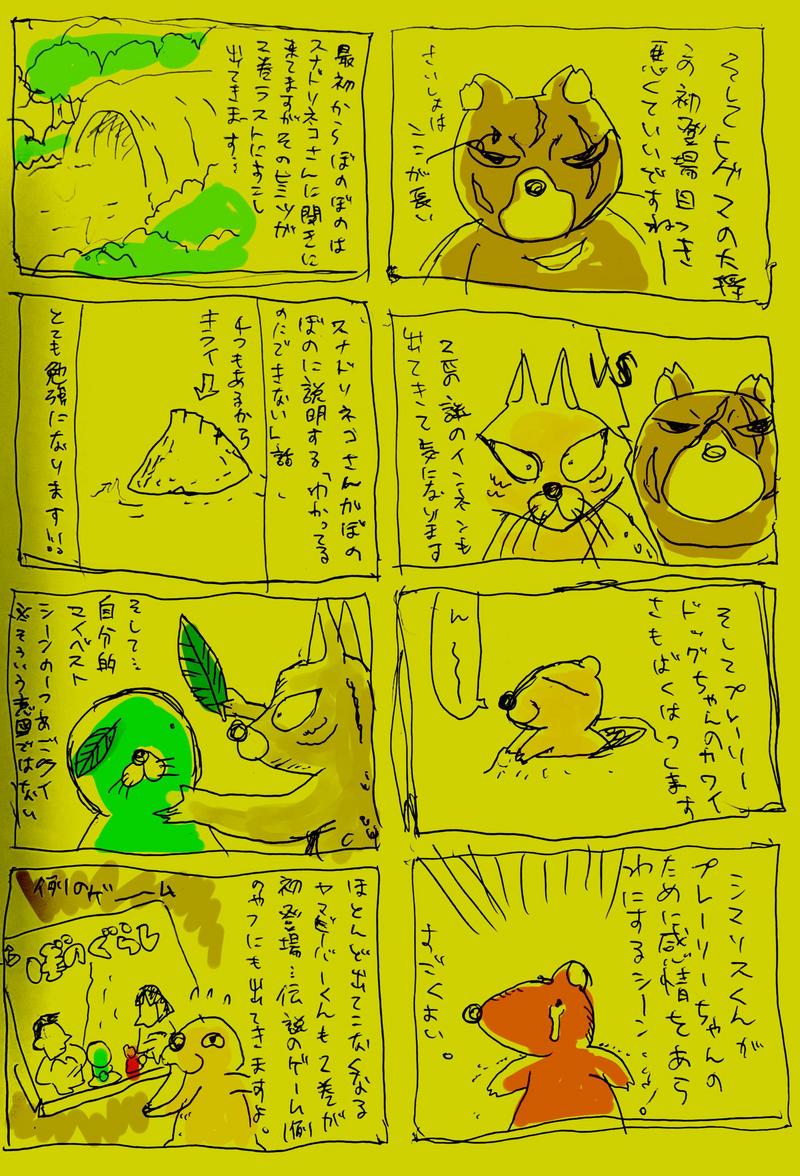 そしてヒグマの大将
の初登場目つき
悪くていいですねー
さいしょは
ここが長い
VS
2匹の謎のインネンも
出てきて気になります
そしてプレーリー
ドッグちゃんのカワイ
さもばくはつします
ん〜〜
シマリスくんが
プレーリーちゃんの
ために感情をあら
わにするシーン…!
すごくよい。
最初からぼのぼのは
スナドリネコさんに聞きに
来てますがそのヒミツが
2巻ラストにすこし
出てきます…
スナドリネコさんがぼの
ぼのに説明する「わかってる
のにできない」話
4つもあるから
キライ
とても勉強になります!!
そして…
自分的
マイベスト
シーンの一つあごクイ
※そういう意図ではない
ほとんど出てこなくなる
ヤマビーバーくんも2巻が
初登場…伝説のゲーム(例
のやつにも出てきますよ。
例のゲーム
ぼのぐらし